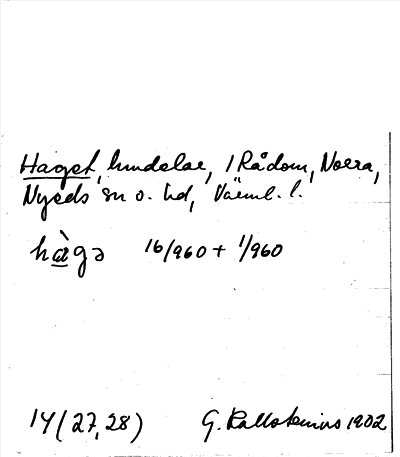 Haget, hmdelar, i Rådom, Norra,
Nyeds sn o. hd, Värml. l.
hàgə 16/960 + 1/960
14 (27, 28) G. Kallstenius 1902